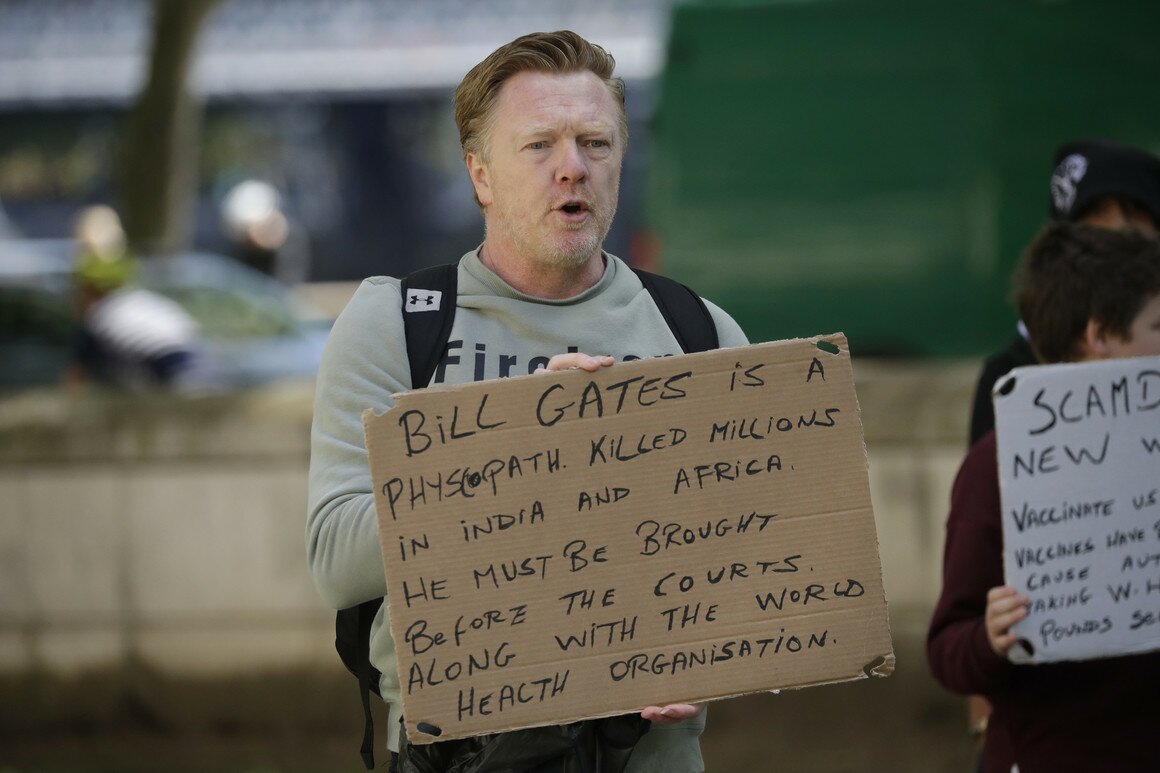 BILL GATES IS A
PHYSCOPATH. KILLED MILLIONS
IN INDIA AND AFRICA.
HE MUST BE BROUGHT
BEFORE THE COURTS.
ALONG WITH THE WORLD
HEALTH ORGANISATION.
SCAMD
NEW W
VACCINATE US
VACCINES HAVE
CAUSE AUT
TAKING W.H
POUNDS